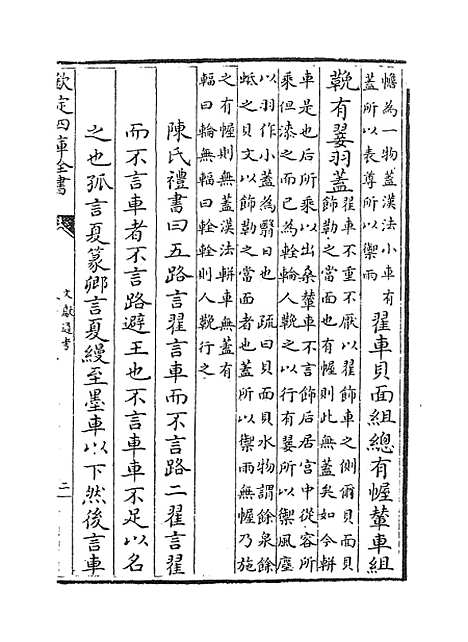 幨為一物蓋漢法小車有
蓋所以表尊所以禦雨
翟車貝面組總有幄輦車組
輓有翣羽蓋
翟車不重不厭以翟飾車之側爾貝面貝
飾勒之當面也有幄則此無蓋矣如今軿
車是也后所乘以出桑輦車不言飾后居宮中從容所
乘但漆之而已為輇輪人輓之以行有翣所以禦風塵
以羽作小蓋為翳日也 疏曰貝面貝水物謂餘泉餘
蚳之貝文以飾勒之當面者也蓋所以禦雨無幄乃施
之有幄則無蓋漢法軿車無蓋有
輻曰輪無輻曰輇輇則人輓行之
陳氏禮書曰五路言翟言車而不言路二翟言翟
而不言車者不言路避王也不言車車不足以名
之也孤言夏篆卿言夏縵至墨車以下然後言車
欽定四庫全書
文獻通考
二